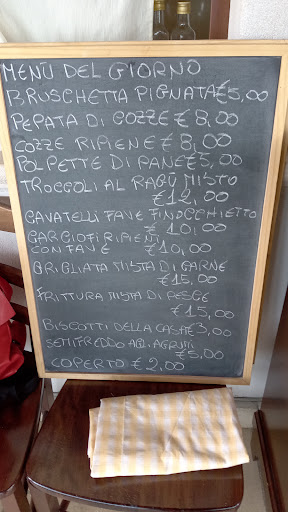 MENÙ DEL GIORNO
BRUSCHETTA PIGNATA €5,00
PEPATA DI COZZE € 8,00
COZZE RIPIENE € 8,00
POLPETTE DI PANE €5,00
TROCCOLI AL RAGÙ MISTO
€12,00
CAVATELLI FAVE FINOCCHIETTO
€ 10,00
CARCIOFI RIPIENI
CON FAVE € 10,00
GRIGLIATA MISTA DI CARNE
€ 15,00
FRITTURA MISTA DI PESCE
€ 15,00
BISCOTTI DELLA CASA €3,00
SEMIFREDDO AGLI AGRUMI
€5,00
COPERTO € 2,00